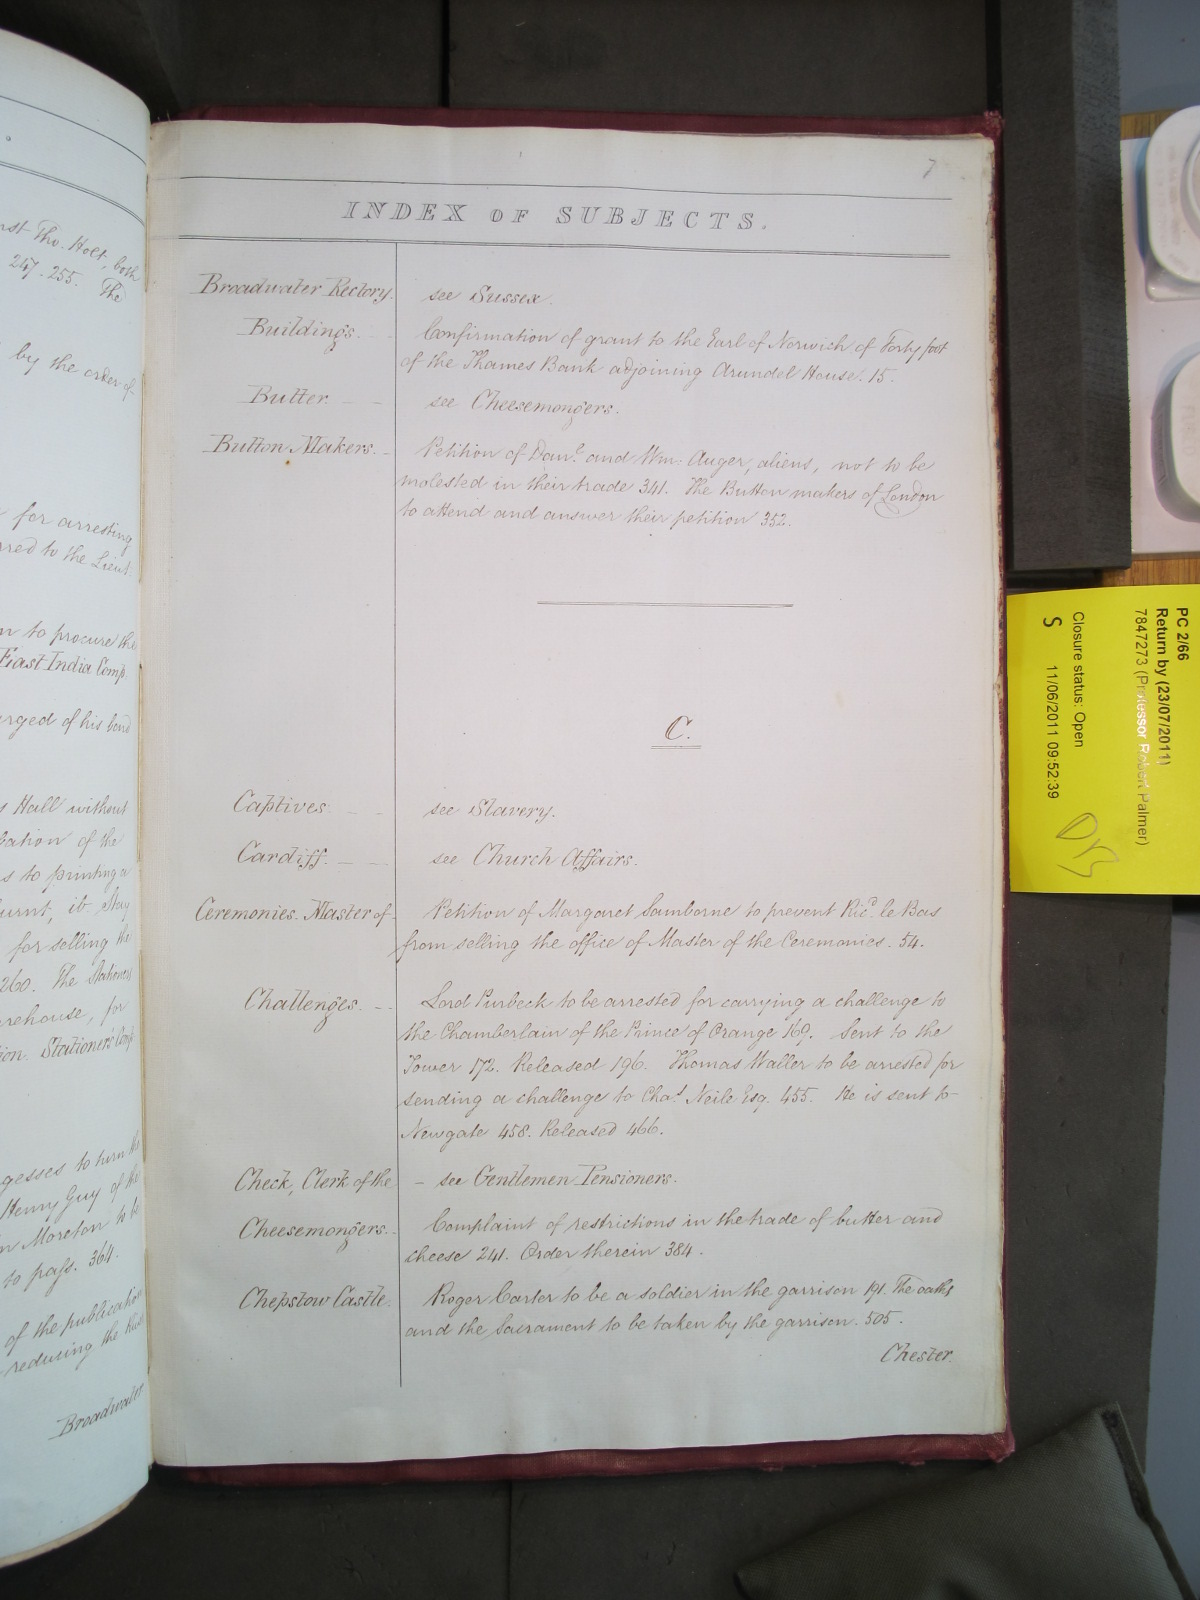 rst Tho. Holt, both
247-255. The
by the order of
for arresting
rred to the Lieut:
n to procure the
East India Comp.
arged of his bond
s Hall without
bation of the
s to printing a
burnt, ib Stay
for selling the
260. The Stationers
rehouse, for
ion. Stationers Comp.
gesses to turn the
Henry Guy of the
n Moreton to be
to pass. 364.
of the publication
reducing the
Broadwater
7
INDEX OF SUBJECTS.
Broadwater Rectory. see Sussex.
Buildings. - Confirmation of grant to the Earl of Norwich of Forty foot
of the Thames Bank adjoining Arundel House. 15.
Butter. - - see Cheesemongers.
Button Makers. - Petition of Danl. and Wm: Auger, aliens, not to be
molested in their trade 341. The Button makers of London
to attend and answer their petition 352.
C.
Captives. - - see Slavery.
Cardiff. - - see Church Affairs.
Ceremonies. Master of - Petition of Margaret Samborne to prevent Ricd. le Bas
from selling the office of Master of the Ceremonies. 54.
Challenges. - - Lord Purbeck to be arrested for carrying a challenge to
the Chamberlain of the Prince of Orange 169. Sent to the
Tower 172. Released 196. Thomas Waller to be arrested for
sending a challenge to Chas. Neile Esq. 455. He is sent to
Newgate 458. Released 466.
Check, Clerk of the - see Gentlemen Pensioners.
Cheesemongers. - Complaint of restrictions in the trade of butter and
cheese 241. Order therein 384.
Chepstow Castle. Roger Carter to be a soldier in the garrison 191. The oaths
and the Sacrament to be taken by the garrison. 505.
Chester.
PC 2/66
Return by (23/07/2011)
7847273 (Professor Robert Palmer)
Closure status: Open
S 11/06/2011 09:52:39